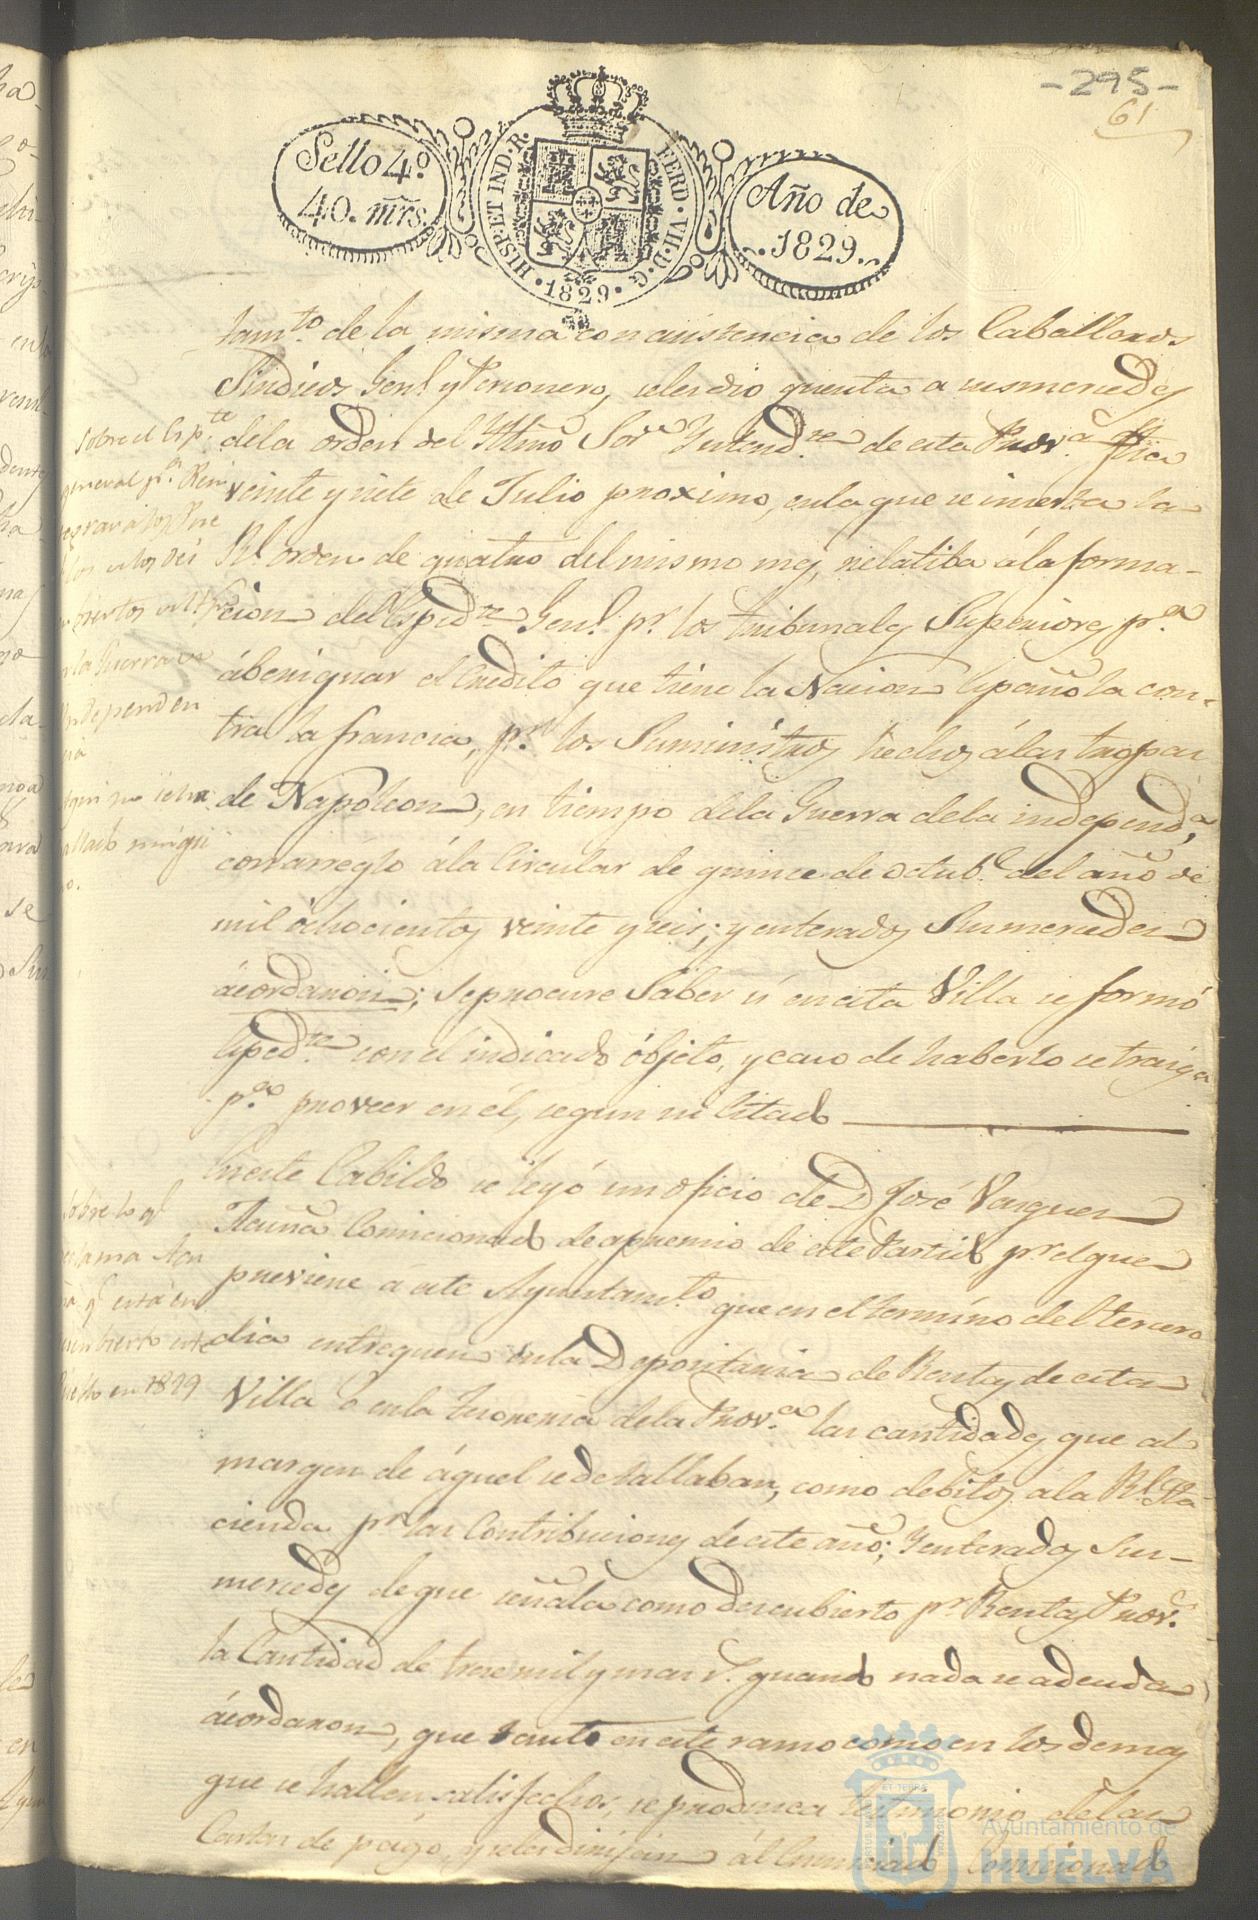 -295-
61
Sello 4º.
40. mrs.
HISP. ET IND. R.
FERD. VII. D. G.
1829
Año de
1829
tamto. de la misma con asistencia de los Caballeros
Sindicos Genl. y Personero, se les dio quenta a susmercedes
de la orden del Yltmo Sor. Yntendte. de esta Prova. fha
veinte y siete de Julio proximo, en la que se inserta la
Rl. orden de quatro del mismo mes, relatiba á la forma-
cion del Espedte. Genl. pr. los tribunales Superiores pa.
ábeniguar el Credito que tiene la Nacion Española con-
tra la francia, pr. los Suministros hechos á las tropas
de Napoleon, en tiempo de la Guerra de la independa,
con arreglo á la Circular de quince de octube. del año de
mil ochocientos veinte y seis; y enterados Susmercedes
ácordaron; Se procure Saber si en esta Villa se formó
Espedte. con el indicado óbjeto, y caso de haberlo se traiga
pa. proveer en él, segun su Estado
Sobre el Espte
general pr. Rein
tegrar a los Pue
blos
la Guerra
Yndependen
cia
En este Cabildo se leyó un oficio de D José Vazquez
Acuña Comicionado de apremio de este Partido pr. el que
previene a este Ayuntamto. que en el termino del tercero
dia entreguen en la Depositaria de Rentas de esta
Villa ó en la tesoreria de la Prova. las cantidades que al
margen de áquel se detallaban, como debitos a la Rl. Ha-
cienda pr. las Contribuciones de este año; Y enterados Sus-
mercedes de que señala como descubierto pr. Rentas Provs.
la Cantidad de trese mil y mas rs. quando nada se adeuda
ácordaron, que tanto en este ramo como en los demas
que se hallen satisfechos, se produzca testimonio de las
Cartas de pago, y se les dirijan ál Enunciado Comicionado
Sobre lo qe
reclama Acu
ña qe está en
descubierto este
Pueblo en 1829
Ayuntamiento de
HUELVA